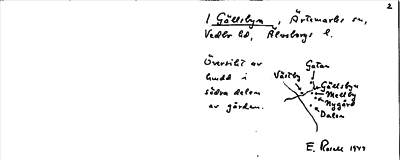 2
1 Gällsbyn, Ärtemarks sn,
Vedbo hd, Älvsborgs l.
Översikt av
budd i
södra delen
av gården.
Gatan
Västby
Gällsbyn
Mellby
Nygård
Dalen
E. Rosell 1944